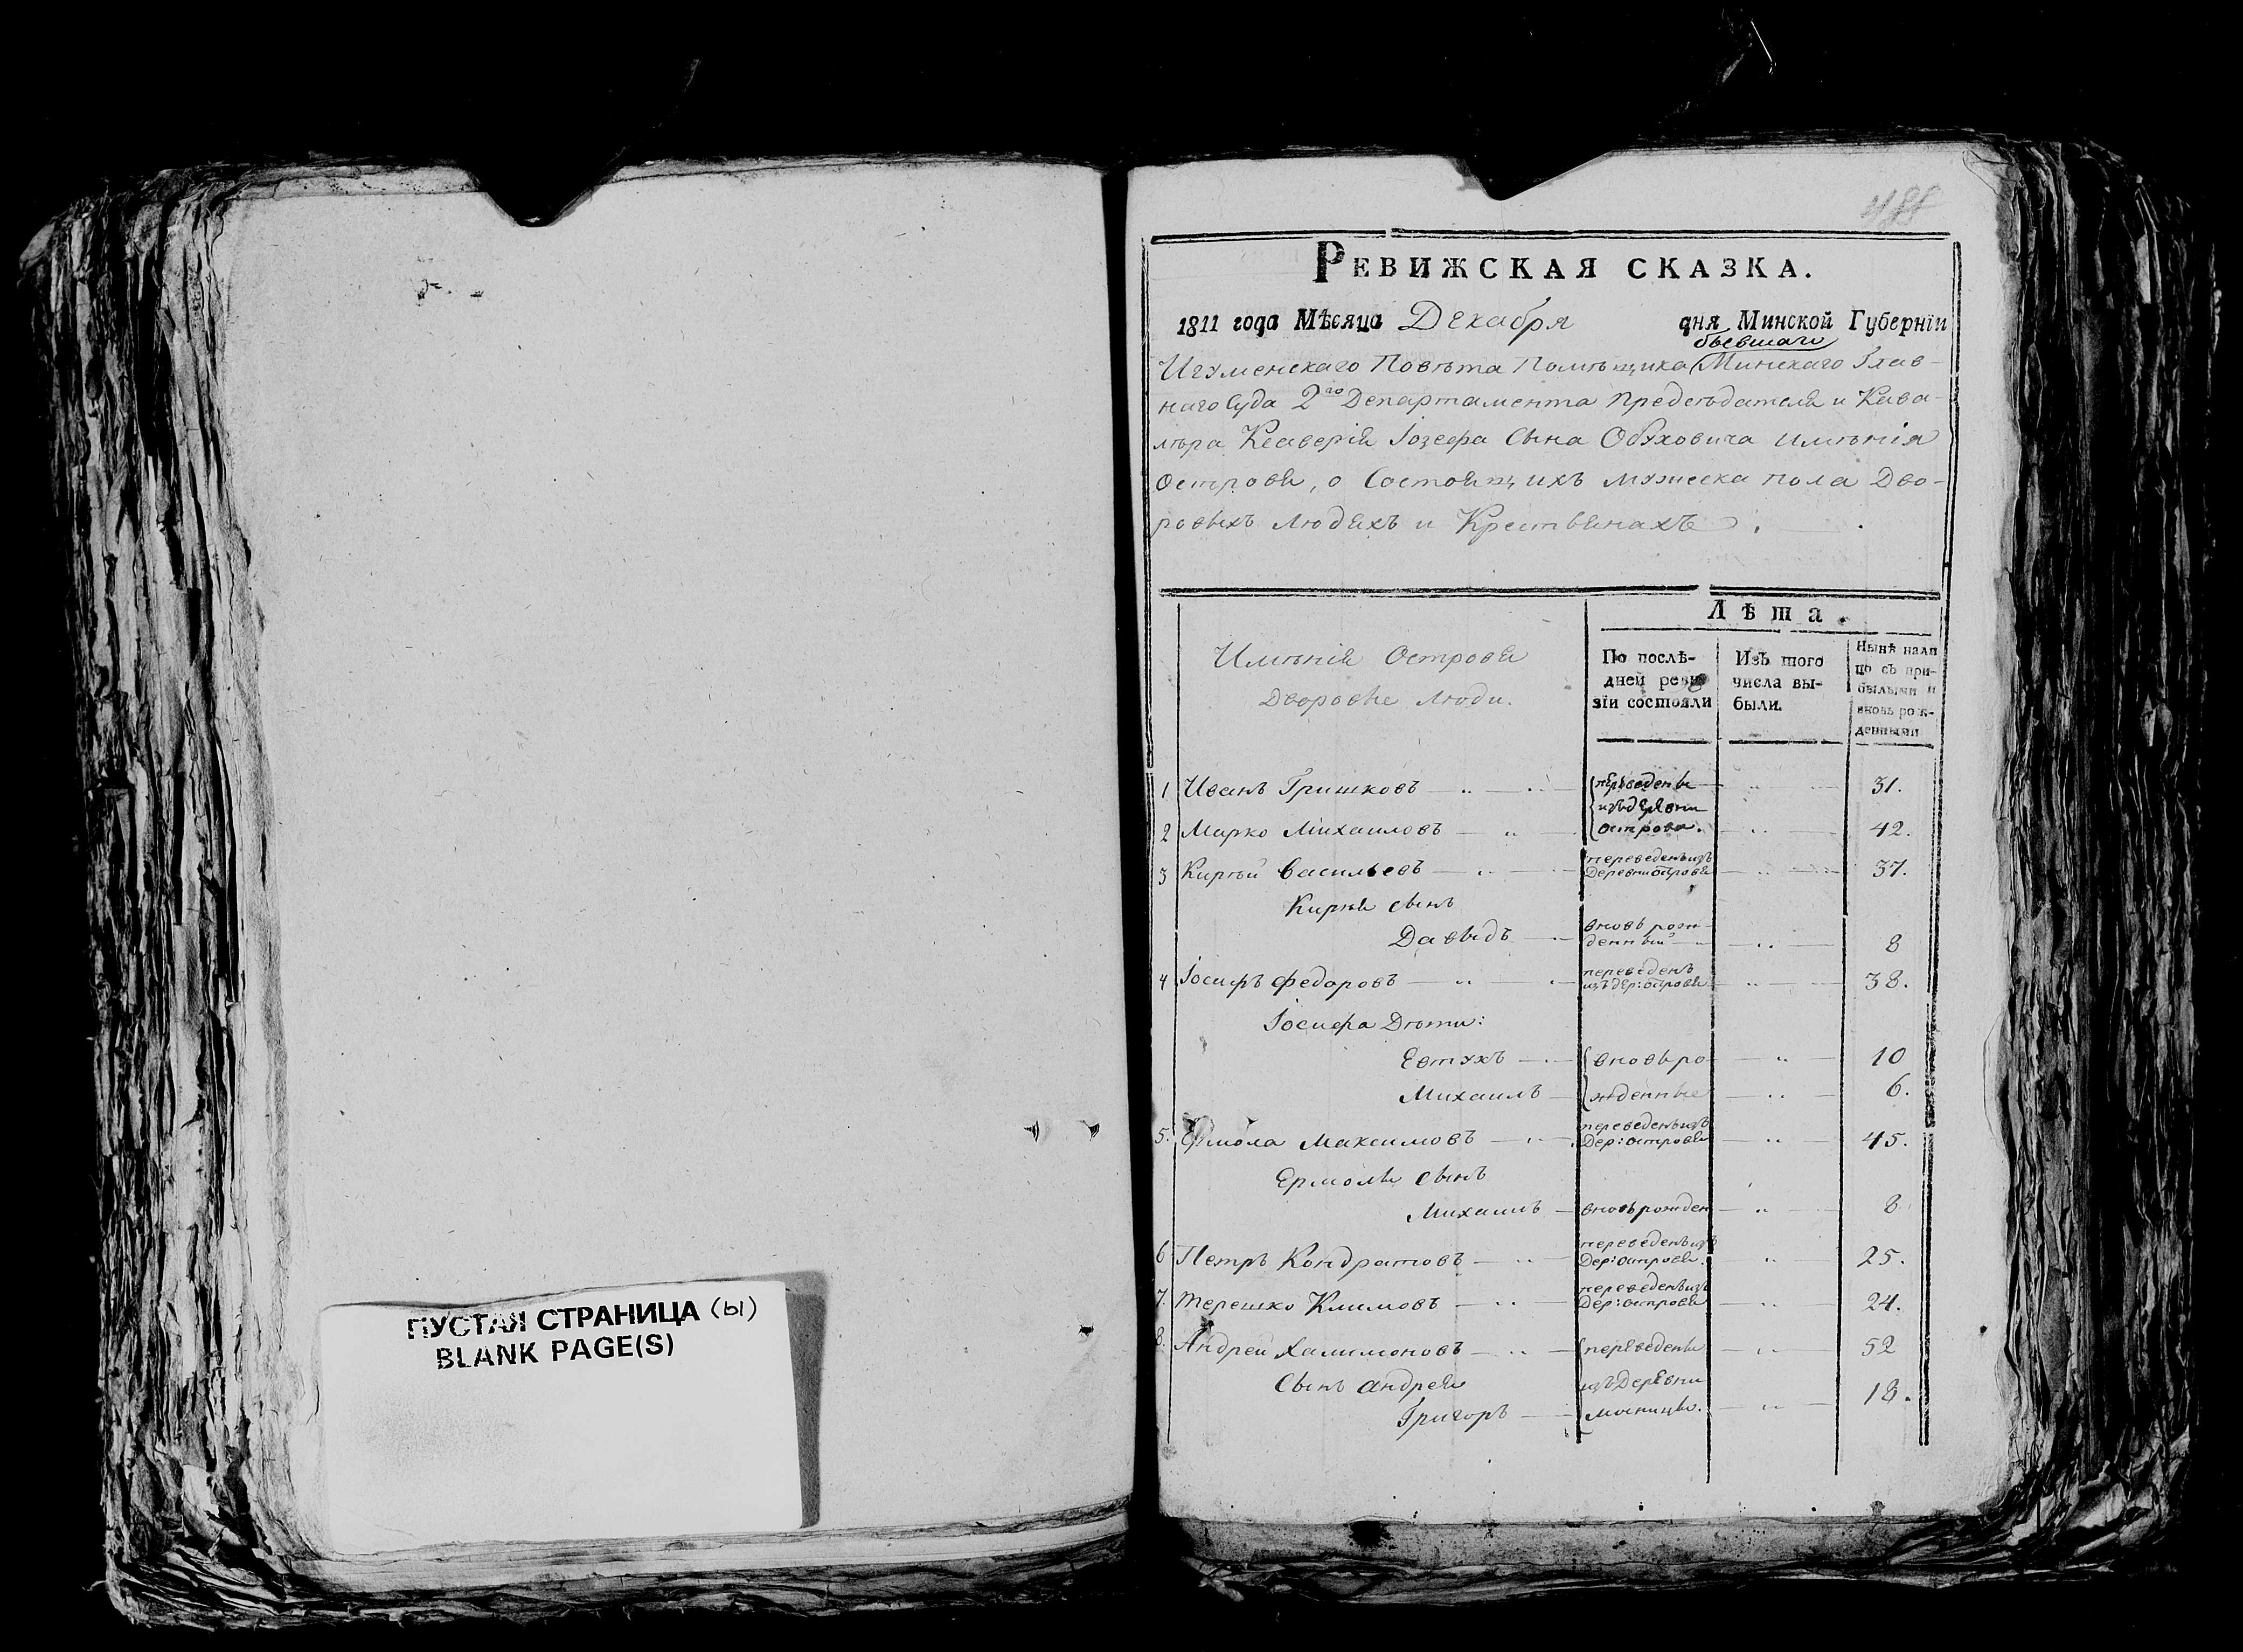 ПУСТАЯ СТРАНИЦА (ы)
BLANK PAGE(S)
488
РЕВИЖСКАЯ СКАЗКА.
1811 года Мѣсяца Декабря дня Минской Губерніи
бывшаго
Игуменскаго Повѣта Помѣщика Минскаго Глав-
наго Суда 2го Департамента Предсѣдателя и Кава-
лѣра Ксаверія Іозефа Сына Обуховича имѣнія
Острова, о Состоящихъ мужеска пола Дво-
ровыхъ людяхъ и Крестьянахъ.
Лѣта.
Имѣнія Острова
Дворовые люди.
По послѣ-
дней реви
зіи состояли
Изъ того
числа вы-
были.
Нынѣ нали
цо съ при-
былыми и
вновь рож-
денными
1 Иванъ Гришковъ переведены 31.
изъ деревни
2 Марко Михаиловъ острова. 42.
3 Кирѣй Васильевъ переведенъ изъ Деревни острова 37.
Кирѣя сынъ
Давыдъ вновь рож денный 8
4 Іосифъ Федоровъ переведенъ изъ дер: острова 38.
Іосифа Дѣти:
Евтухъ вновь ро 10
Михаилъ жденные 6.
5. Ермола Максимовъ переведенъ изъ Дер: острова 45.
Ермолы сынъ
Михаилъ вновь рожден 8
6 Петръ Кондратовъ переведенъ изъ Дер: острова. 25.
7. Терешко Климовъ переведенъ изъ Дер: острова 24.
8. Андрей Халимоновъ переведены 52
Сынъ Андрея изъ Деревни 18.
Григоръ